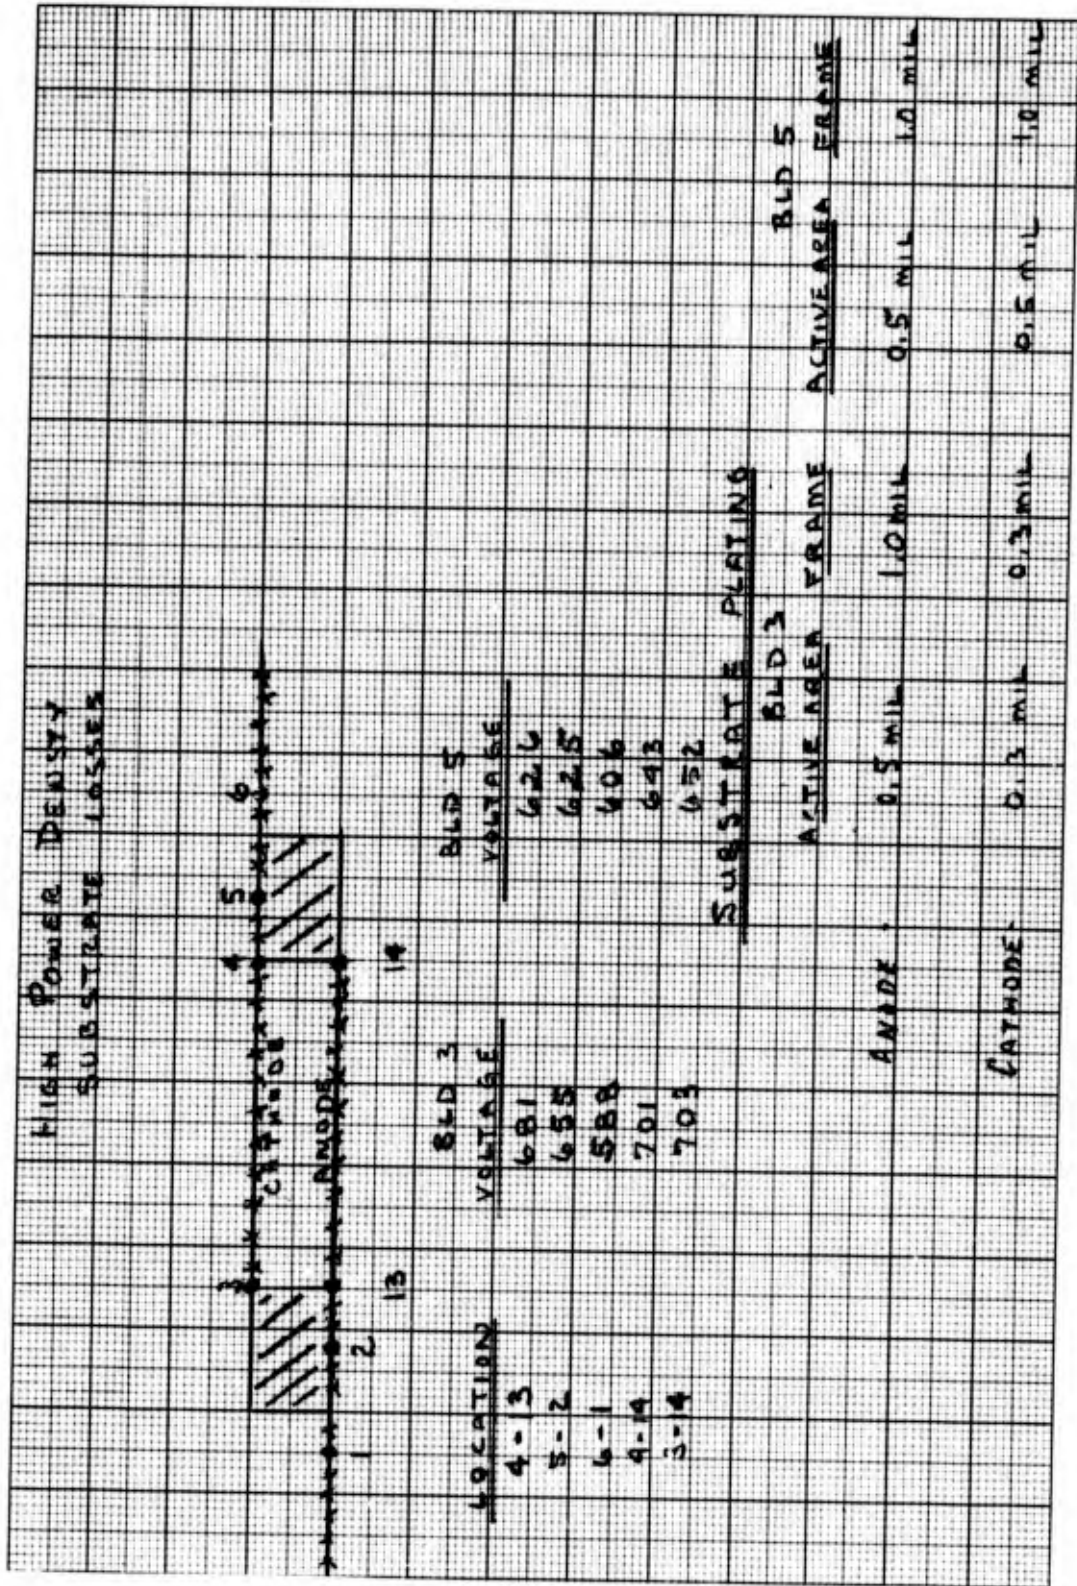 HIGH POWER DENSITY
SUBSTRATE LOSSES
3 4 5 6
CATHODE
ANODE
1 2 13 14
BLD 3 BLD 5
LOCATION VOLTAGE VOLTAGE
4-13 681 626
5-2 655 625
6-1 588 606
4-14 701 643
3-14 703 652
SUBSTRATE PLATING
BLD 3 BLD 5
ACTIVE AREA FRAME ACTIVE AREA FRAME
ANODE 0.5 MIL 1.0 MIL 0.5 MIL 1.0 MIL
CATHODE 0.3 MIL 0.3 MIL 0.5 MIL 1.0 MIL